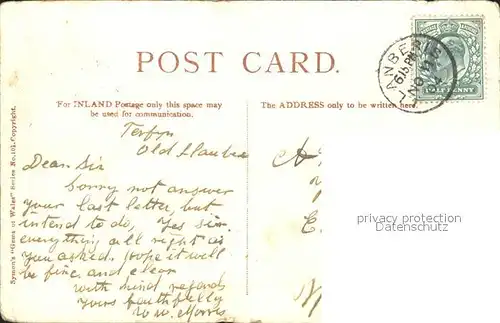 POST CARD.
LLANBERIS
6.15 PM
NO 9
HALFPENNY
For INLAND Postage only this space may
be used for communication.
The ADDRESS only to be written here.
Old Llanberis
Dear Sir
Sorry not answer
your last letter, but
intend to do, Yes sir.
everything all right as
you asked. hope it will
be fine and clear
with kind regards
yours faithfully
W. W. Morris
privacy protection
Datenschutz
Symon's "Gems of Wales" Series Copyright.